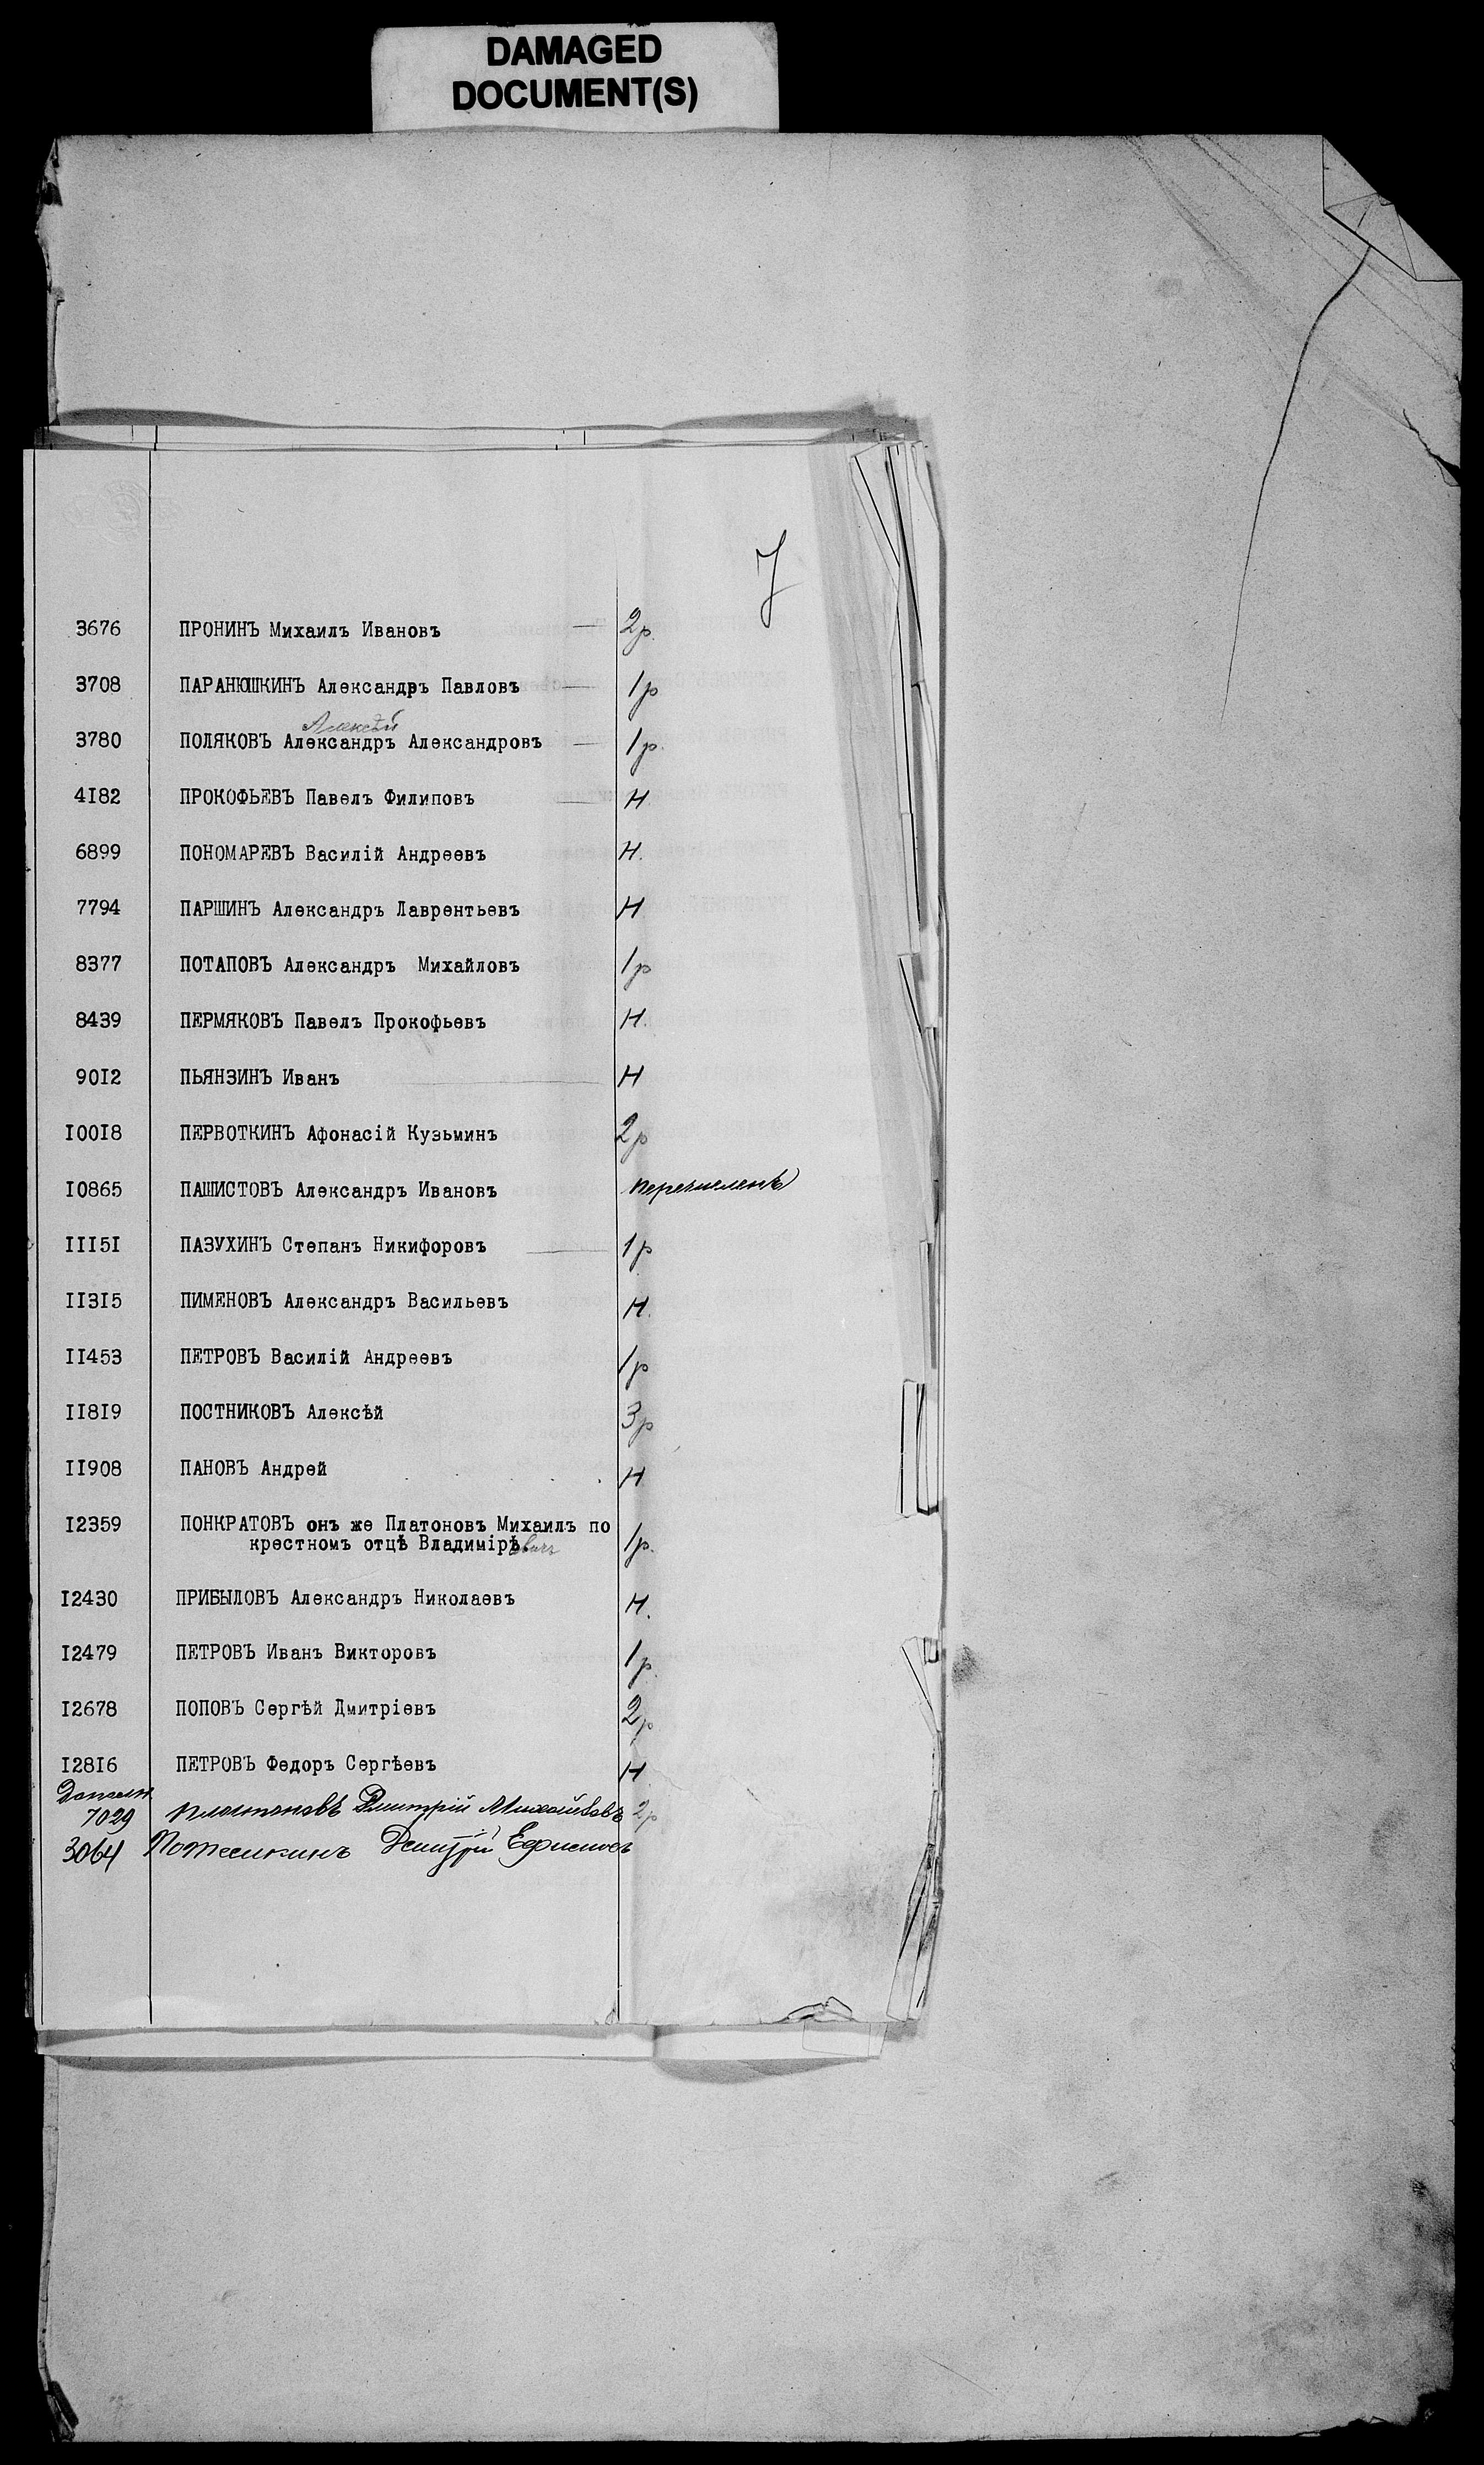 DAMAGED
DOCUMENT(S)
7
3676 ПРОНИНЪ Михаилъ Ивановъ — 2р.
3708 ПАРАНЮШКИНЪ Александръ Павловъ — 1р
Алексѣй
3780 ПОЛЯКОВЪ Александръ Александровъ — 1р.
4I82 ПРОКОФЬЕВЪ Павелъ Филиповъ — Н
6899 ПОНОМАРЕВЪ Василій Андреевъ Н.
7794 ПАРШИНЪ Александръ Лаврентьевъ Н
8377 ПОТАПОВЪ Александръ Михайловъ 1р
8439 ПЕРМЯКОВЪ Павелъ Прокофьевъ Н.
90I2 ПЬЯНЗИНЪ Иванъ — Н
I00I8 ПЕРВОТКИНЪ Афонасій Кузьминъ 2р
I0865 ПАШИСТОВЪ Александръ Ивановъ перечисленъ
III5I ПАЗУХИНЪ Степанъ Никифоровъ — 1р
II3I5 ПИМЕНОВЪ Александръ Васильевъ Н.
II453 ПЕТРОВЪ Василій Андреевъ 1р
II8I9 ПОСТНИКОВЪ Алексѣй 3р
II908 ПАНОВЪ Андрей Н
I2359 ПОНКРАТОВЪ онъ же Платоновъ Михаилъ по
крестномъ отцѣ Владимірѣ 1р.
I2430 ПРИБЫЛОВЪ Александръ Николаевъ Н.
I2479 ПЕТРОВЪ Иванъ Викторовъ 1р.
I2678 ПОПОВЪ Сергѣй Дмитріевъ 2р
I28I6 ПЕТРОВЪ Федоръ Сергѣевъ Н
Дополн
7029 Платоновъ Дмитрій Михайловъ 2р
3064 Потемкинъ Дмитрій Ефимовъ